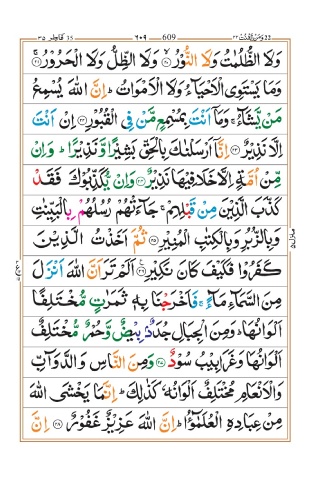 فاطر ٣٥ 609 ٦٠٩ ومن يقنت ٢٢
وَلَا الظُّلُمٰتُ وَلَا النُّوْرُ ﴿۲۰﴾ وَلَا الظِّلُّ وَلَا الْحَرُوْرُ ﴿۲۱﴾
وَمَا يَسْتَوِى الْاَحْيَآءُ وَلَا الْاَمْوَاتُ ؕ اِنَّ اللّٰهَ يُسْمِعُ
مَنْ يَّشَآءُ ۚ وَمَاۤ اَنْتَ بِمُسْمِعٍ مَّنْ فِى الْقُبُوْرِ ﴿۲۲﴾ اِنْ اَنْتَ
اِلَّا نَذِيْرٌ ﴿۲۳﴾ اِنَّاۤ اَرْسَلْنٰكَ بِالْحَقِّ بَشِيْرًا وَّنَذِيْرًا ؕ وَاِنْ
مِّنْ اُمَّةٍ اِلَّا خَلَا فِيْهَا نَذِيْرٌ ﴿۲۴﴾ وَاِنْ يُّكَذِّبُوْكَ فَقَدْ
كَذَّبَ الَّذِيْنَ مِنْ قَبْلِهِمْ ۚ جَآءَتْهُمْ رُسُلُهُمْ بِالْبَيِّنٰتِ
وَبِالزُّبُرِ وَبِالْكِتٰبِ الْمُنِيْرِ ﴿۲۵﴾ ثُمَّ اَخَذْتُ الَّذِيْنَ
كَفَرُوْا فَكَيْفَ كَانَ نَكِيْرِ ﴿۲۶﴾ اَلَمْ تَرَ اَنَّ اللّٰهَ اَنْزَلَ
مِنَ السَّمَآءِ مَآءً ۚ فَاَخْرَجْنَا بِهٖ ثَمَرٰتٍ مُّخْتَلِفًا
اَلْوَانُهَا ؕ وَمِنَ الْجِبَالِ جُدَدٌۢ بِيْضٌ وَّحُمْرٌ مُّخْتَلِفٌ
اَلْوَانُهَا وَغَرَابِيْبُ سُوْدٌ ﴿۲۷﴾ وَمِنَ النَّاسِ وَالدَّوَآبِّ
وَالْاَنْعَامِ مُخْتَلِفٌ اَلْوَانُهٗ كَذٰلِكَ ؕ اِنَّمَا يَخْشَى اللّٰهَ
مِنْ عِبَادِهِ الْعُلَمٰٓؤُا ؕ اِنَّ اللّٰهَ عَزِيْزٌ غَفُوْرٌ ﴿۲۸﴾ اِنَّ
منزل ۵